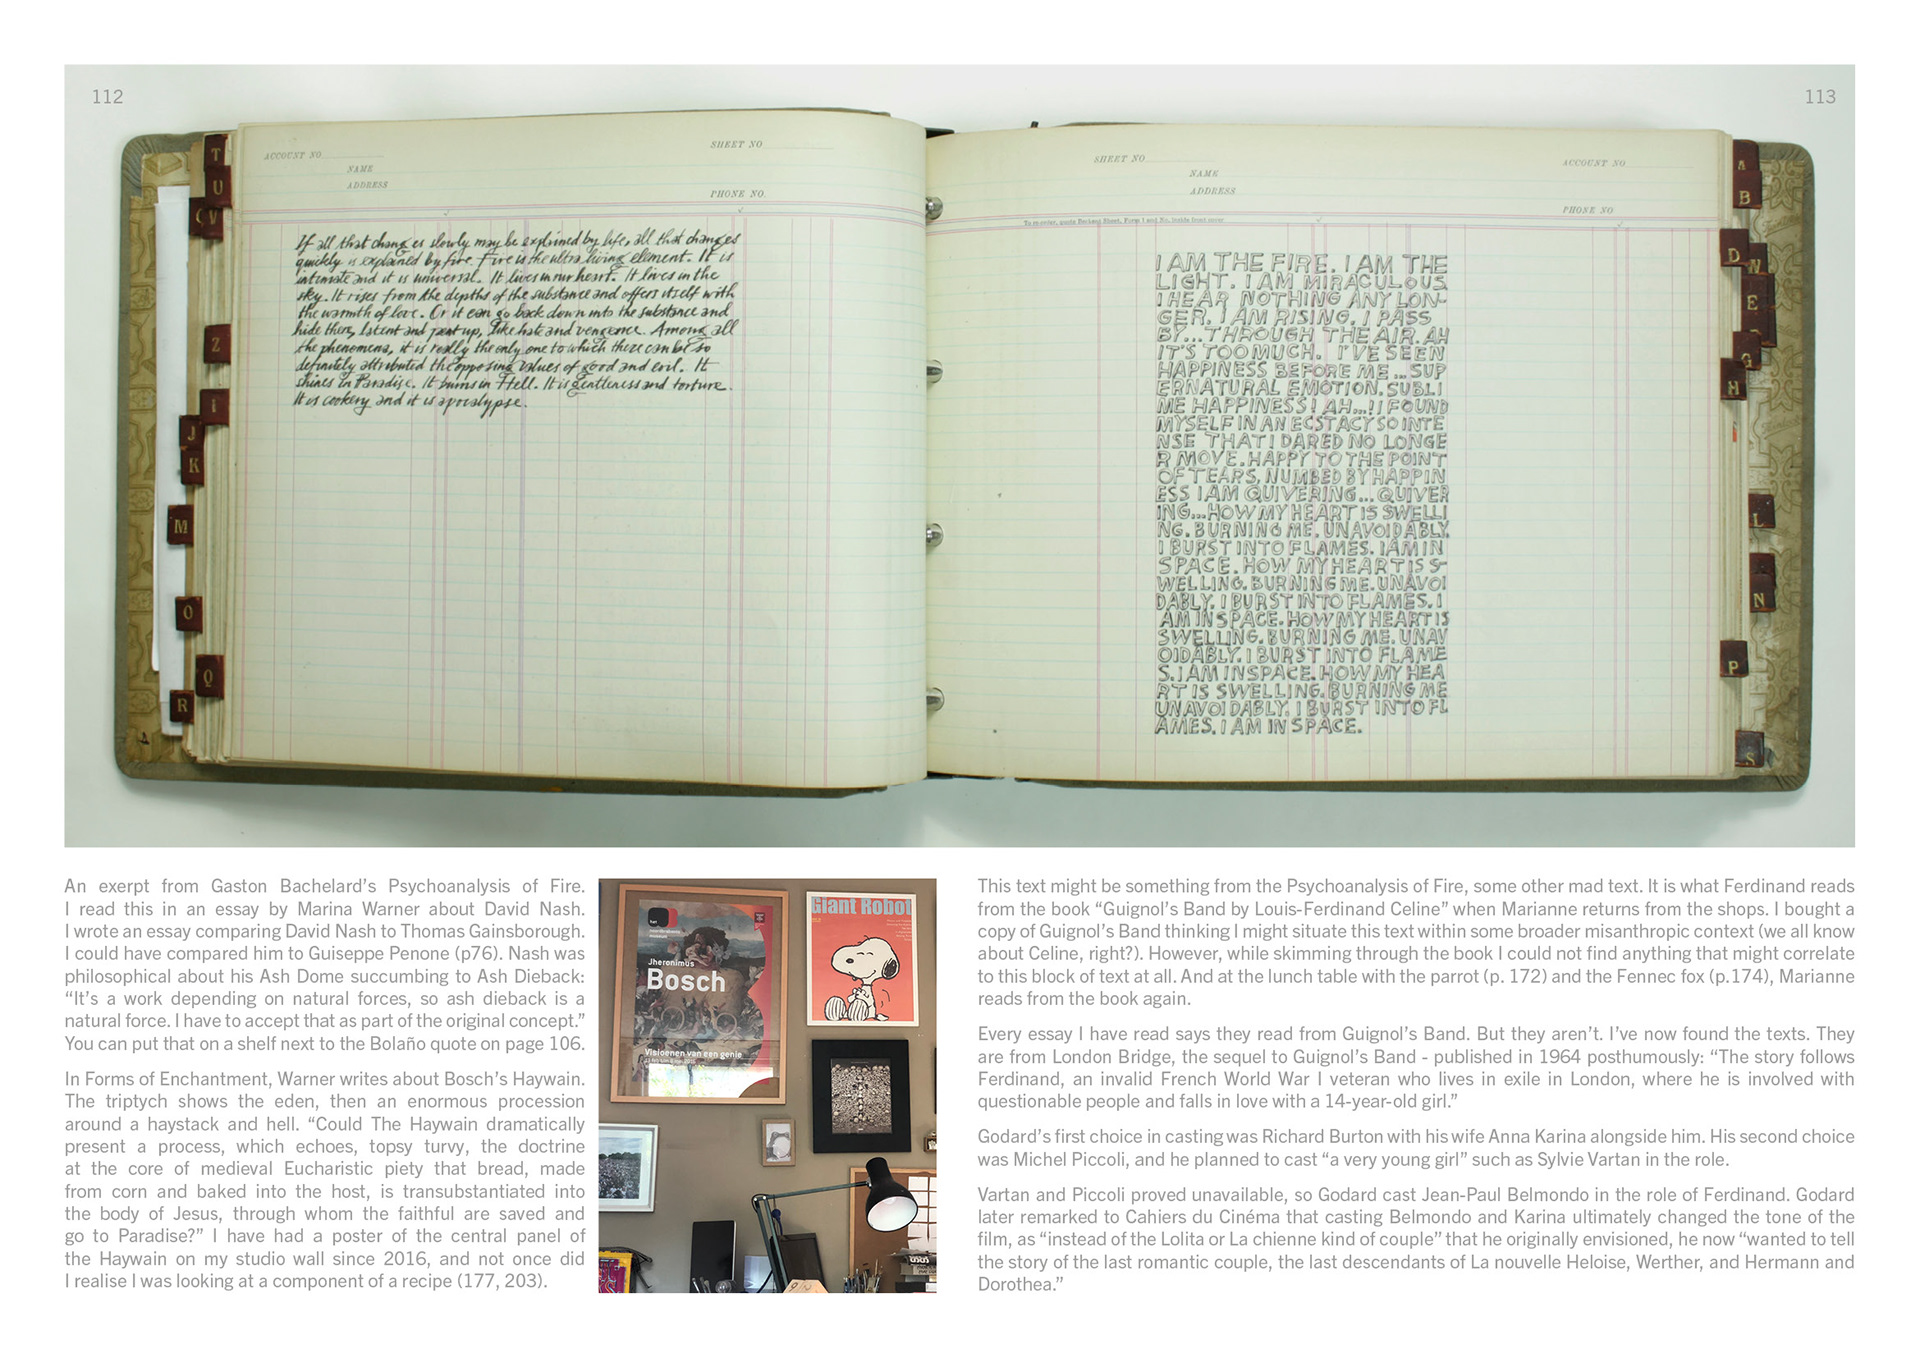 112
113
T
U
V
Z
I
J
K
M
O
Q
R
ACCOUNT NO
SHEET NO
NAME
ADDRESS
PHONE NO.
If all that changes slowly may be explained by life, all that changes
quickly is explained by fire. Fire is the ultra living element. It is
intimate and it is universal. It lives in our heart. It lives in the
sky. It rises from the depths of the substance and offers itself with
the warmth of love. Or it can go back down into the substance and
hide there, latent and pent up, like hate and vengence. Among all
the phenomena, it is really the only one to which there can be so
definitely attributed the opposing values of good and evil. It
shines in Paradise. It burns in Hell. It is gentleness and torture.
It is cookery and it is apocalypse.
SHEET NO
ACCOUNT NO
NAME
ADDRESS
PHONE NO
I AM THE FIRE. I AM THE
LIGHT. I AM MIRACULOUS
I HEAR NOTHING ANY LON-
GER. I AM RISING, I PASS
BY...THROUGH THE AIR. AH
IT'S TOO MUCH. I'VE SEEN
HAPPINESS BEFORE ME...SUP
ERNATURAL EMOTION. SUBLI
ME HAPPINESS! AH...! I FOUND
MYSELF IN AN ECSTACY SO INTE
NSE THAT I DARED NO LONGE
R MOVE. HAPPY TO THE POINT
OF TEARS, NUMBED BY HAPPIN
ESS I AM QUIVERING...QUIVER
ING...HOW MY HEART IS SWELLI
NG. BURNING ME. UNAVOIDABLY.
I BURST INTO FLAMES. I AM IN
SPACE. HOW MY HEART IS S-
WELLING. BURNING ME. UNAVOI
DABLY. I BURST INTO FLAMES. I
AM IN SPACE. HOW MY HEART IS
SWELLING. BURNING ME. UNAV
OIDABLY. I BURST INTO FLAME
S. I AM IN SPACE. HOW MY HEA
RT IS SWELLING. BURNING ME
UNAVOIDABLY. I BURST INTO FL
AMES. I AM IN SPACE.
A
B
D
E
G
H
L
N
P
S
An exerpt from Gaston Bachelard's Psychoanalysis of Fire.
I read this in an essay by Marina Warner about David Nash.
I wrote an essay comparing David Nash to Thomas Gainsborough.
I could have compared him to Guiseppe Penone (p76). Nash was
philosophical about his Ash Dome succumbing to Ash Dieback:
“It's a work depending on natural forces, so ash dieback is a
natural force. I have to accept that as part of the original concept.”
You can put that on a shelf next to the Bolaño quote on page 106.
In Forms of Enchantment, Warner writes about Bosch's Haywain.
The triptych shows the eden, then an enormous procession
around a haystack and hell. “Could The Haywain dramatically
present a process, which echoes, topsy turvy, the doctrine
at the core of medieval Eucharistic piety that bread, made
from corn and baked into the host, is transubstantiated into
the body of Jesus, through whom the faithful are saved and
go to Paradise?” I have had a poster of the central panel of
the Haywain on my studio wall since 2016, and not once did
I realise I was looking at a component of a recipe (177, 203).
Jheronimus
Bosch
Visioenen van een genie
Giant Robot
This text might be something from the Psychoanalysis of Fire, some other mad text. It is what Ferdinand reads
from the book “Guignol's Band by Louis-Ferdinand Celine” when Marianne returns from the shops. I bought a
copy of Guignol's Band thinking I might situate this text within some broader misanthropic context (we all know
about Celine, right?). However, while skimming through the book I could not find anything that might correlate
to this block of text at all. And at the lunch table with the parrot (p. 172) and the Fennec fox (p.174), Marianne
reads from the book again.
Every essay I have read says they read from Guignol's Band. But they aren't. I've now found the texts. They
are from London Bridge, the sequel to Guignol's Band - published in 1964 posthumously: “The story follows
Ferdinand, an invalid French World War I veteran who lives in exile in London, where he is involved with
questionable people and falls in love with a 14-year-old girl.”
Godard's first choice in casting was Richard Burton with his wife Anna Karina alongside him. His second choice
was Michel Piccoli, and he planned to cast “a very young girl” such as Sylvie Vartan in the role.
Vartan and Piccoli proved unavailable, so Godard cast Jean-Paul Belmondo in the role of Ferdinand. Godard
later remarked to Cahiers du Cinéma that casting Belmondo and Karina ultimately changed the tone of the
film, as “instead of the Lolita or La chienne kind of couple” that he originally envisioned, he now “wanted to tell
the story of the last romantic couple, the last descendants of La nouvelle Heloise, Werther, and Hermann and
Dorothea.”